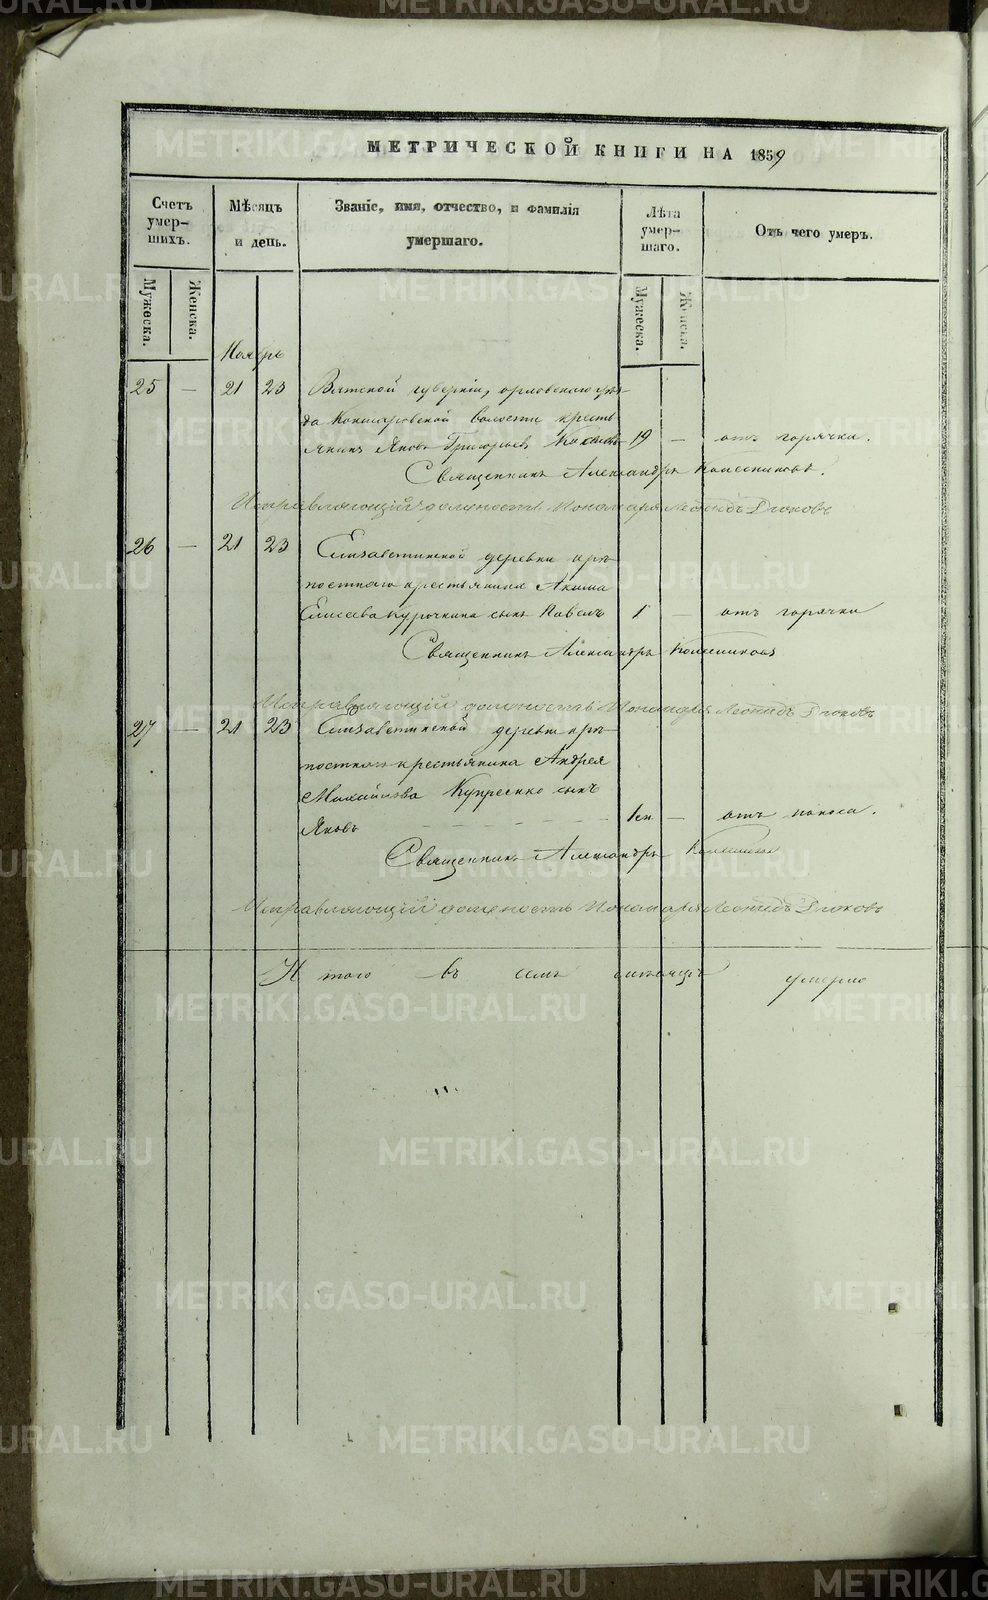 МЕТРИЧЕСКОЙ КНИГИ НА 1859
Счетъ умер-шихъ.
Мѣсяцъ и день.
Званіе, имя, отчество, и фамилія умершаго.
Лѣта умер-шаго.
Отъ чего умеръ.
Мужеска.
Женска.
Мужеска.
Женска.
Ноябрь
25 — 21 23 Вятской губерніи, орловскаго уѣз-
да волости кресть
янинъ Яковъ Григорьевъ 19 — отъ горячки.
Священникъ Александръ Колесниковъ.
Исправляющій должность Пономаря Леонидъ
26 — 21 23 Елизаветинской деревни крѣ-
постнаго крестьянина Акима
Елисеева Курочкина сынъ Павелъ 1 — отъ горячки
Священникъ Александръ Колесниковъ
Исправляющій должность Пономаря Леонидъ
27 — 21 23 Елизаветинской деревни крѣ-
постнаго крестьянина Андрея
Михайлова сынъ
Яковъ — 1 — отъ поноса.
Священникъ Александръ Колесниковъ
Исправляющій должность Пономаря Леонидъ
И того въ семъ мѣсяцѣ умерло
METRIKI.GASO-URAL.RU